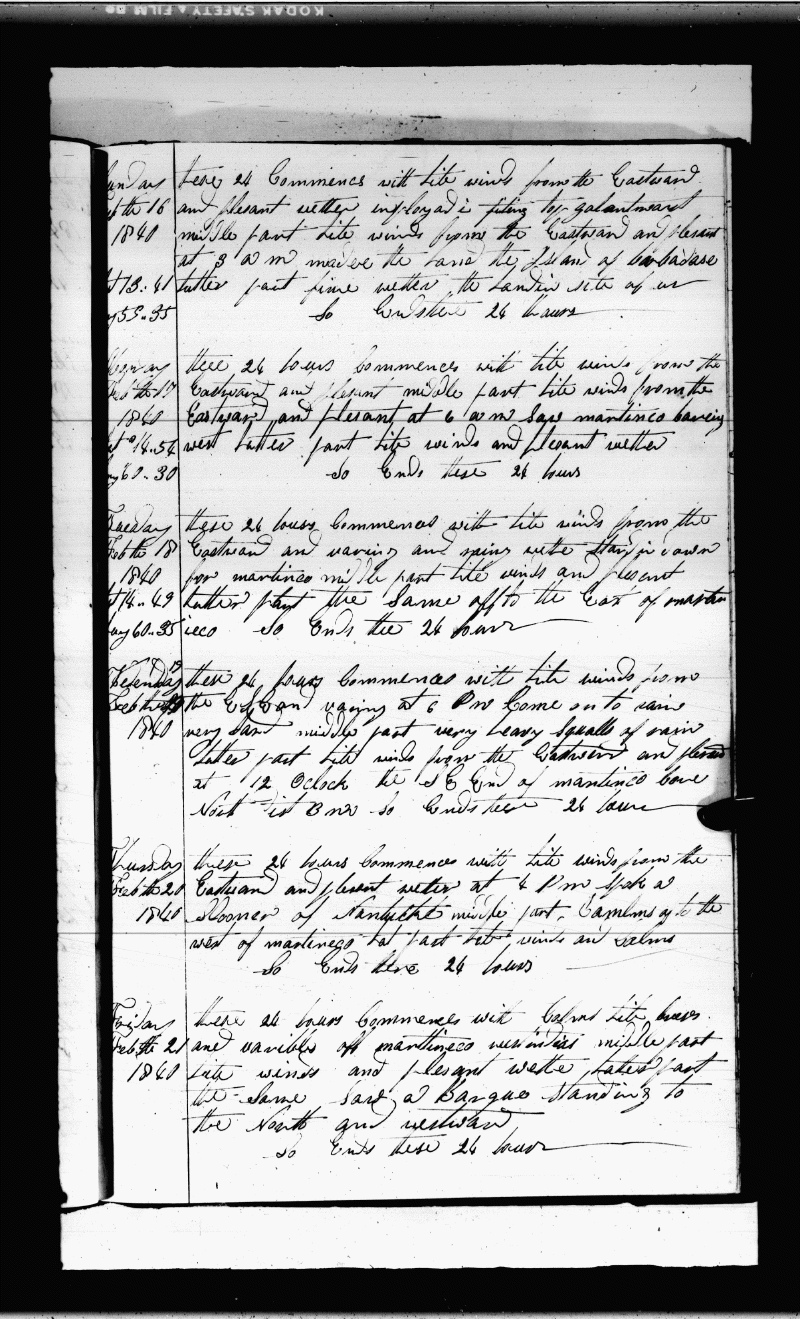 KODAK SAFETY FILM
Sunday these 24 Commences with lite winds from the Eastward
Feb th 16 and plesant wether imployed in fiting top galantmast
1840 middle part lite winds from the Eastward and plesant
at 3 a m made the land the Ilean of barbadose
lat 13..41 latter part fine wether the land in site of us
long 59..35 So Ends these 24 hours
Monday these 24 hours Commences with lite winds from the
Feb th 17 Eastward and plesant middle part lite winds from the
1840 Eastward and plesant at 6 a m Saw martinico baring
lat 14..54 west latter part lite winds and plesant wether
long 60..30 So Ends these 24 hours
Tuesday these 24 hours Commences with lite winds from the
Feb th 18 Eastward and varing and rainy wether Standing down
1840 for martinico middle part lite winds and plesant
lat 14..49 latter part the Same off to the East of martin
long 60..35 ieco So Ends these 24 hours
19 these 24 hours Commences with lite winds from
Feb th the and varing at 6 P m Come on to rain
1840 very hard middle part very heavy Squalls of rain
latter part lite winds from the Eastward and plesant
at 12 Oclock the S E End of martinico bore
North dist So Ends these 24 hours
Thursday these 24 hours Commences with lite winds from the
Feb th 20 Eastward and plesant wether at 4 P m Spok a
1840 Slooner of Nantucket middle part Camlms of to the
west of martineqo lat part lite winds and calms
So Ends these 24 hours
Friday these 24 hours Commences with Calms lite
Feb th 21 and varible off martineco middle part
1840 lite winds and plesant wether later part
the Same Saw a Barque Standing to
the North and westward
So Ends these 24 hours